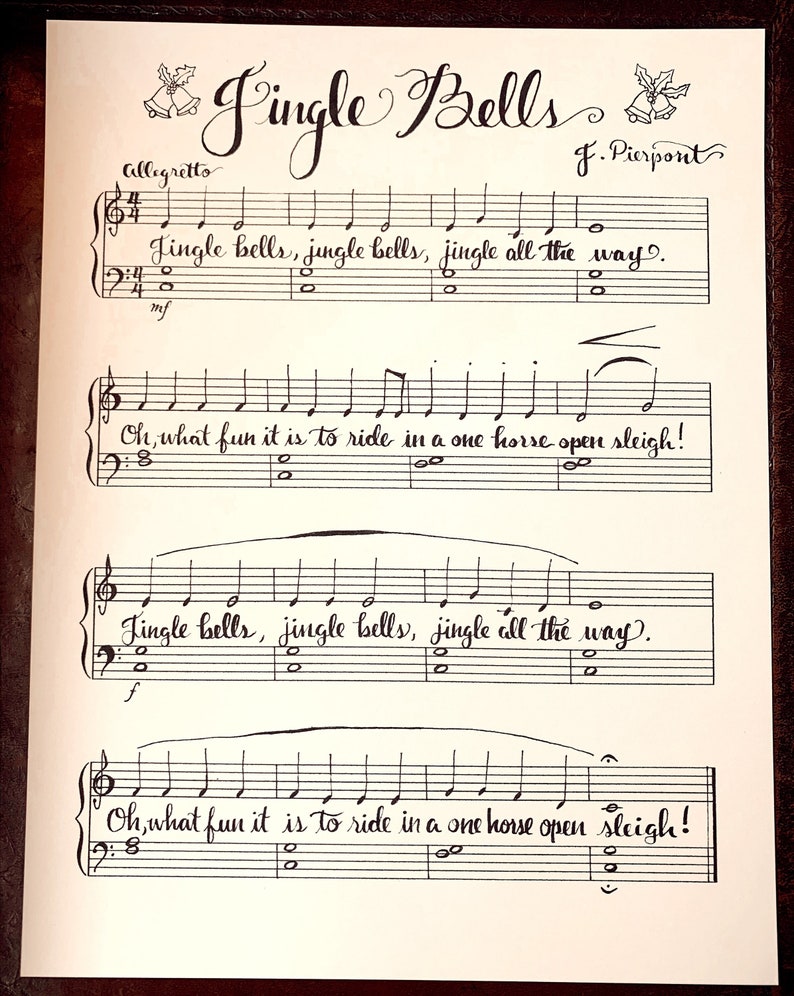 Jingle Bells
J. Pierpont
Allegretto
4 4
Jingle bells, jingle bells, jingle all the way.
4 4
mf
Oh, what fun it is to ride in a one horse open sleigh!
Jingle bells, jingle bells, jingle all the way.
f
Oh, what fun it is to ride in a one horse open sleigh!